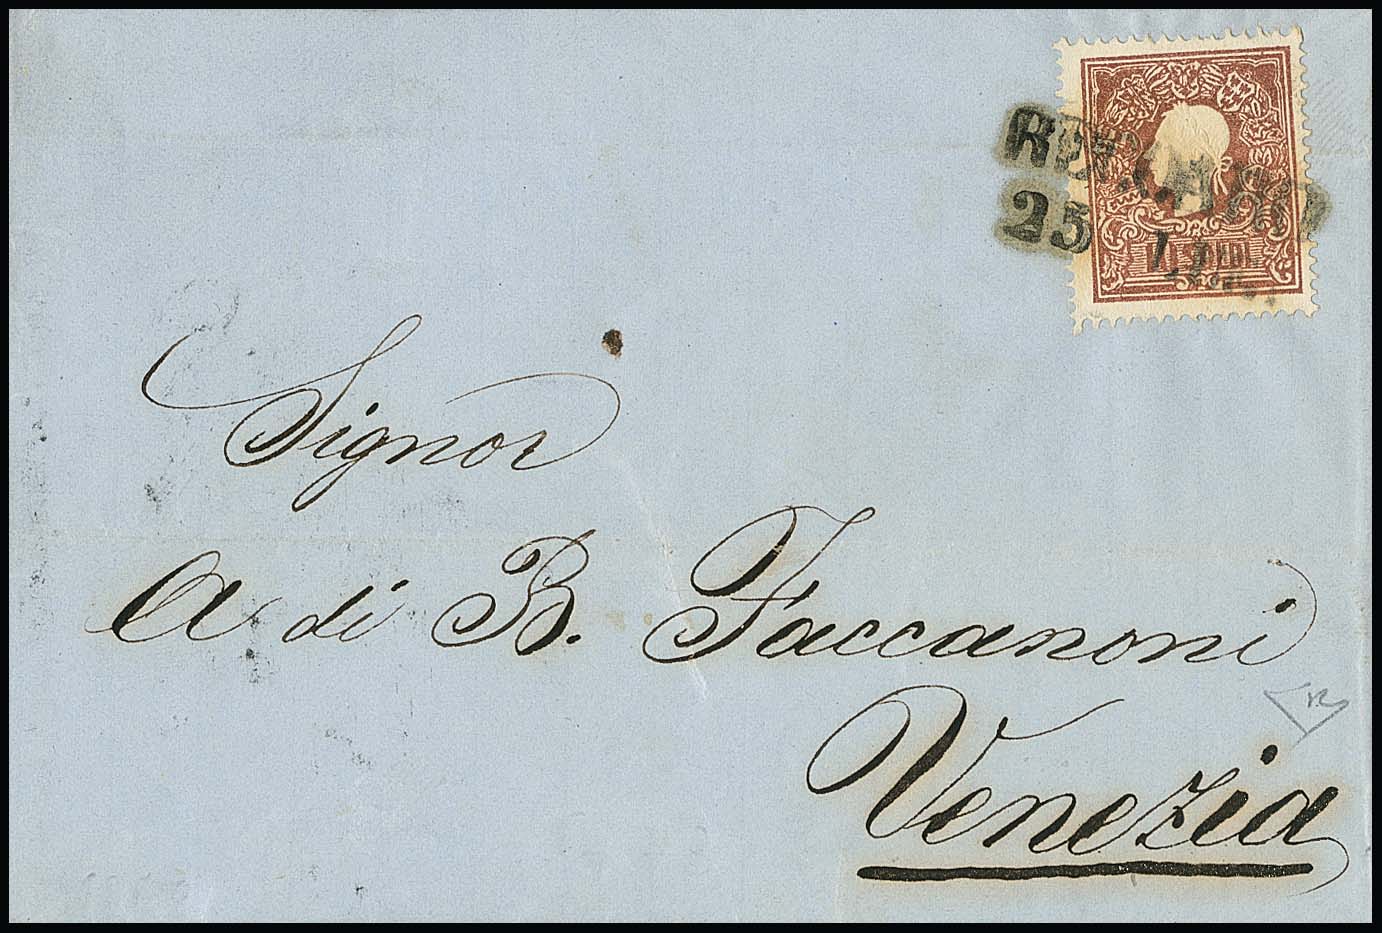 BERGAMO
25
10 SOLDI
Signor
A di B. Faccanoni
Venezia